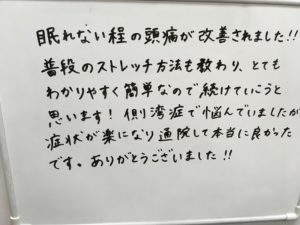 眠れない程の頭痛が改善されました!!
普段のストレッチ方法も教わり、とても
わかりやすく簡単なので続けていこうと
思います! 側湾症で悩んでいましたが
症状が楽になり通院して本当に良かった
です。ありがとうございました!!